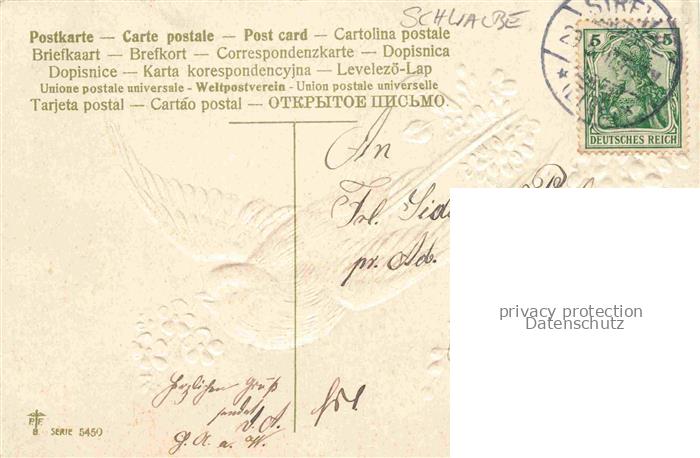 SCHWALBE
Postkarte — Carte postale — Post card — Cartolina postale
Briefkaart — Brefkort — Correspondenzkarte — Dopisnica
Dopisnice — Karta korespondencyjna — Levelezö-Lap
Unione postale universale - Weltpostverein - Union postale universelle
Tarjeta postal — Cartáo postal — ОТКРЫТОЕ ПИСЬМО.
5 5
DEUTSCHES REICH
An
Frl.
pr. Ad.
privacy protection
Datenschutz
Herzlichen Gruß
sendet
P.F.
B. SERIE 5450